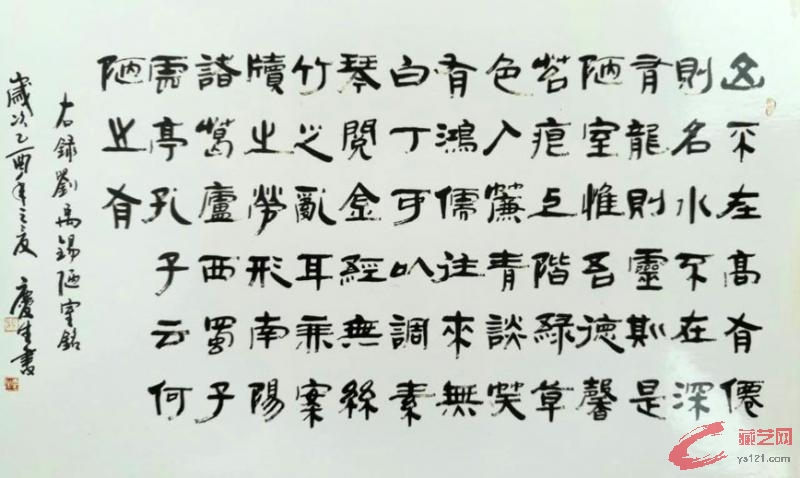 山不在高有僊
則名水不在深
有龍則靈斯是
陋室惟吾德馨
苔痕上階綠草
色入簾青談笑
有鴻儒往來無
白丁可以調素
琴閱金經無絲
竹之亂耳無案
牘之勞形南陽
諸葛廬西蜀子
雲亭孔子云何
陋之有
右録劉禹錫陋室銘
歲次乙酉年之夏 慶生書
藏艺网
ys121.com